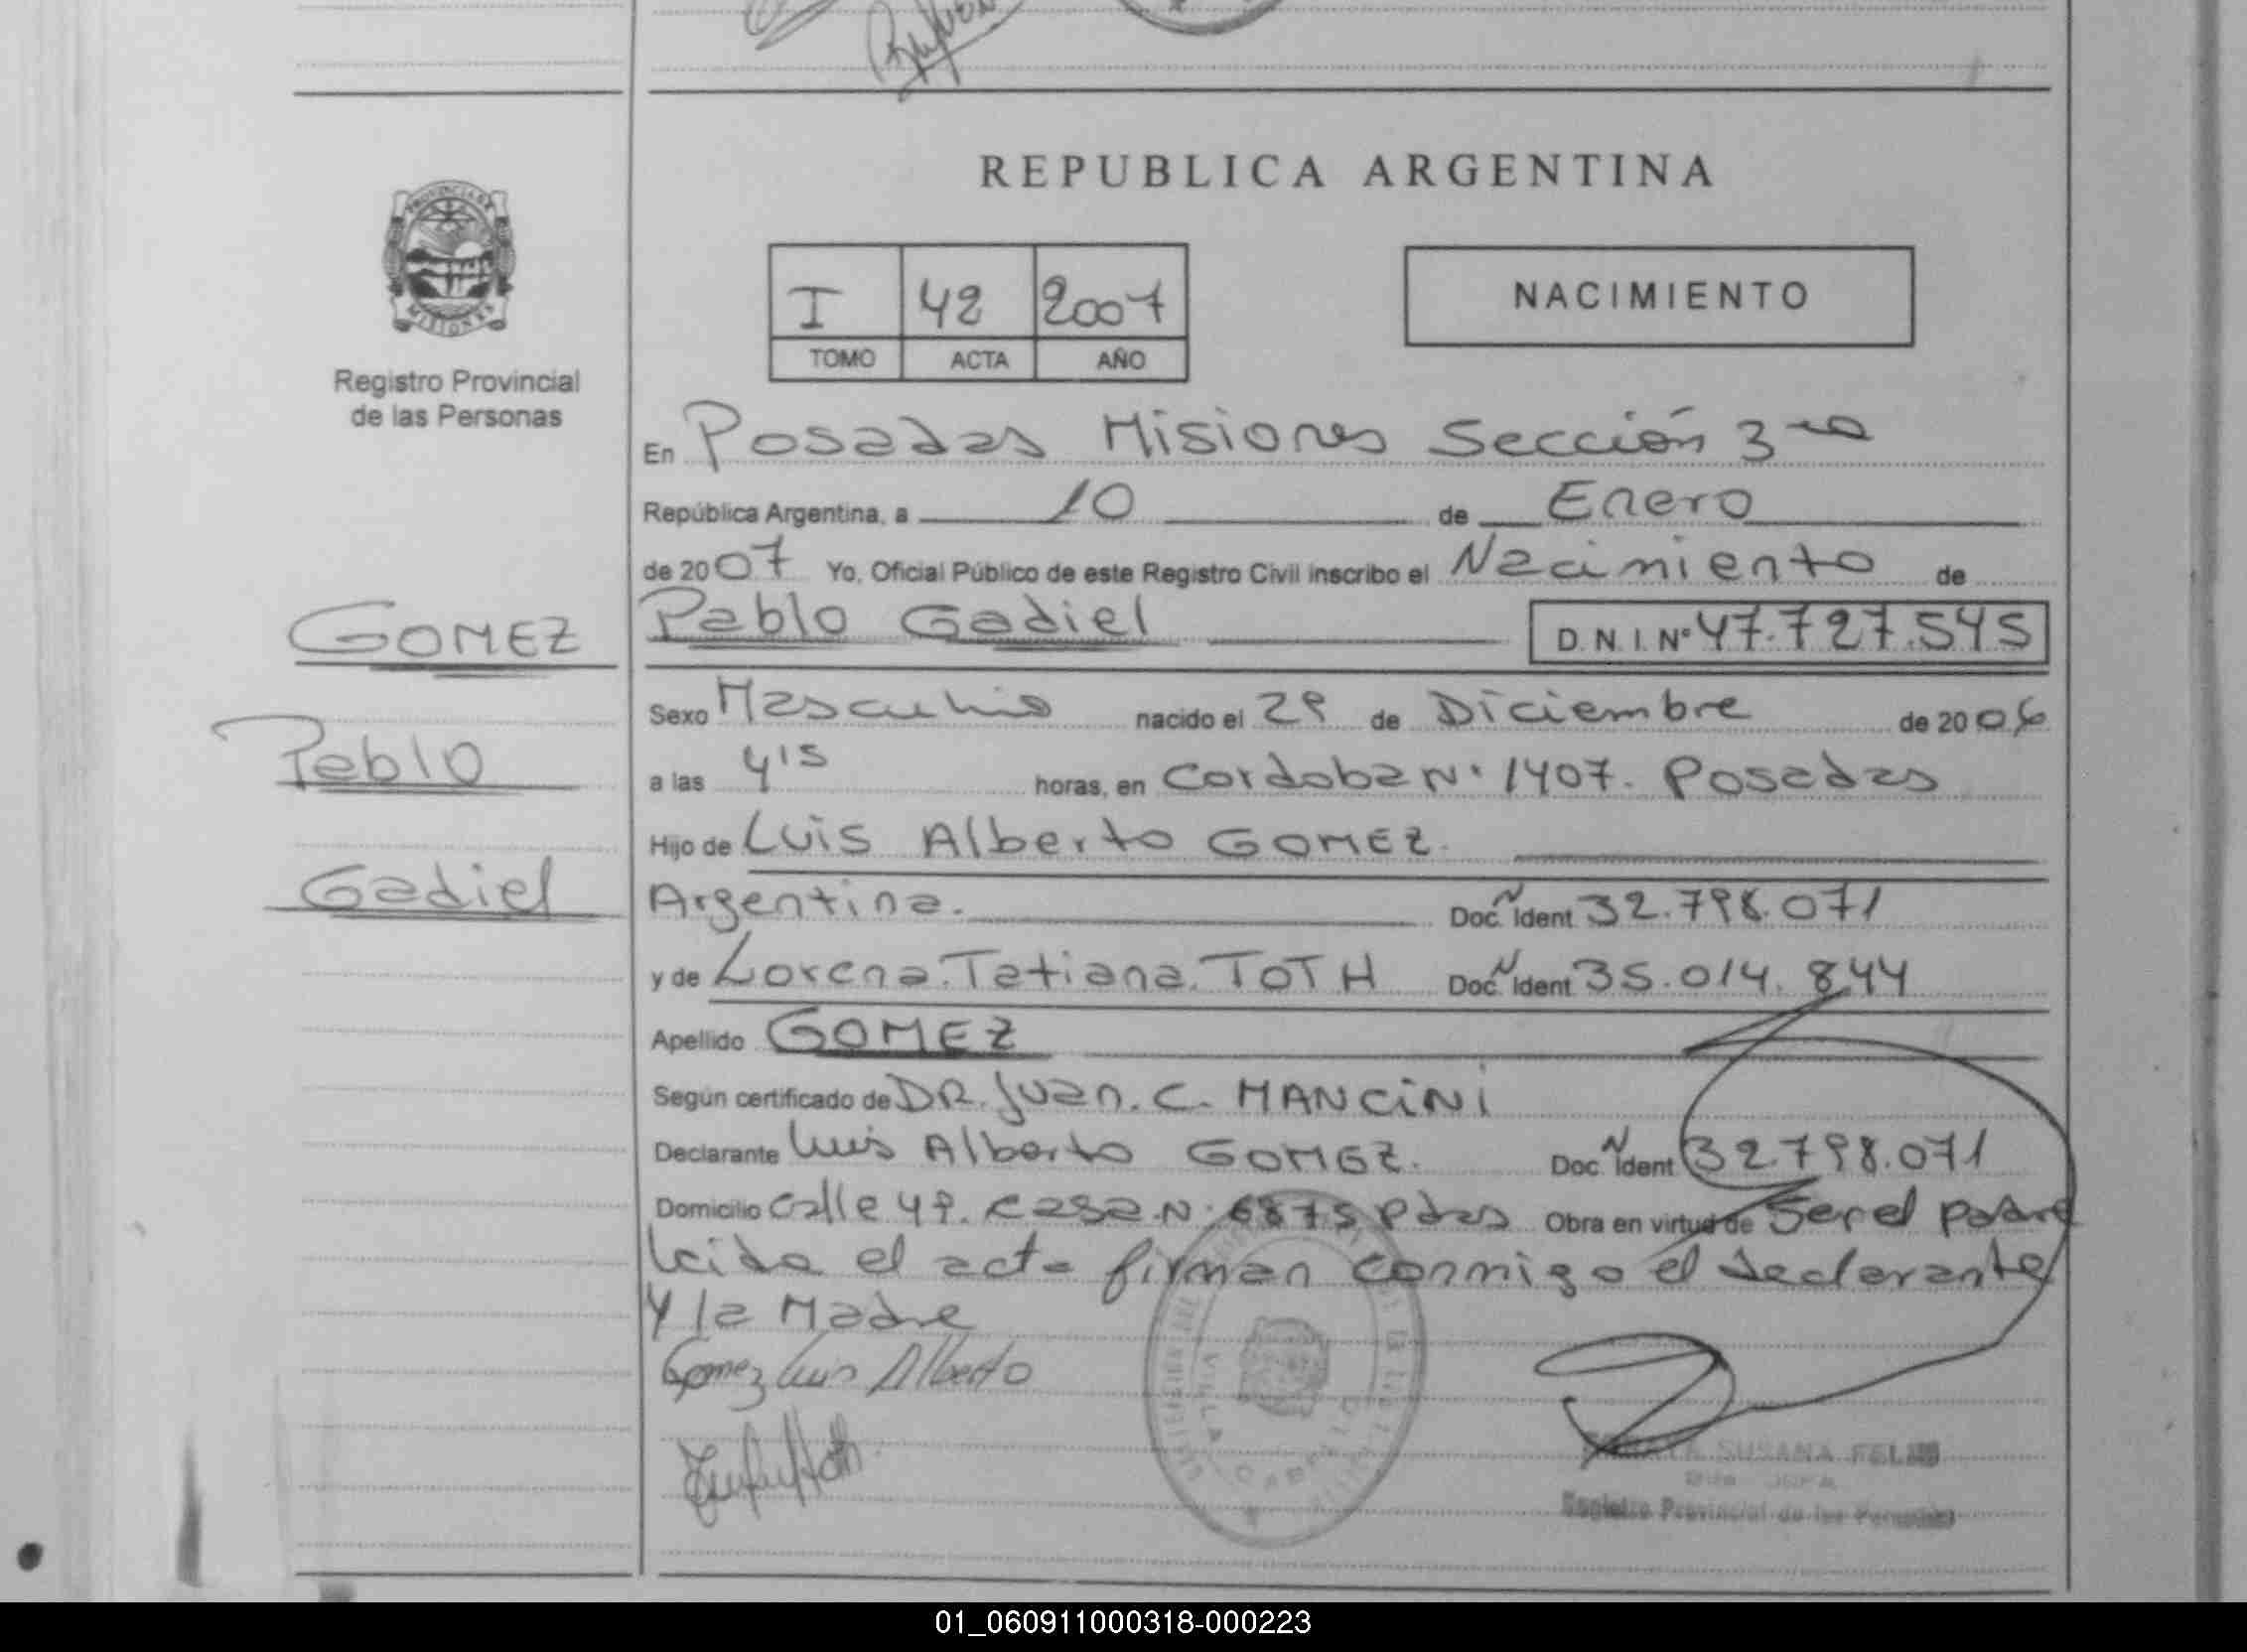 REPUBLICA ARGENTINA
PROVINCIA DE
MISIONES
Registro Provincial
de las Personas
I 42 2007
TOMO ACTA AÑO
NACIMIENTO
En Posadas Misiones Sección 3ra
República Argentina, a 10 de Enero
de 2007 Yo, Oficial Público de este Registro Civil inscribo el Nacimiento de
GOMEZ
Pablo
Gadiel
Pablo Gadiel D.N.I. Nº 47.727.545
Sexo Masculino nacido el 29 de Diciembre de 2006
a las 4 15 horas, en Cordoba Nº 1407. Posadas
Hijo de Luis Alberto GOMEZ.
Argentina. Doc. Ident 32.798.071
y de Lorena. Tatiana. TOTH Doc. Ident 35.014.844
Apellido GOMEZ
Según certificado de DR. Juan. C. MANCiNi
Declarante Luis Alberto GOMEZ. Doc. Ident 32.798.071
Domicilio Calle 49. Casa N. 6875 Pdas Obra en virtud de Ser el padre
leida el acta firman conmigo el declarante
y la Madre
Gomez Luis Alberto
SUSANA FELIU
Registro Provincial de las Personas
01_060911000318-000223